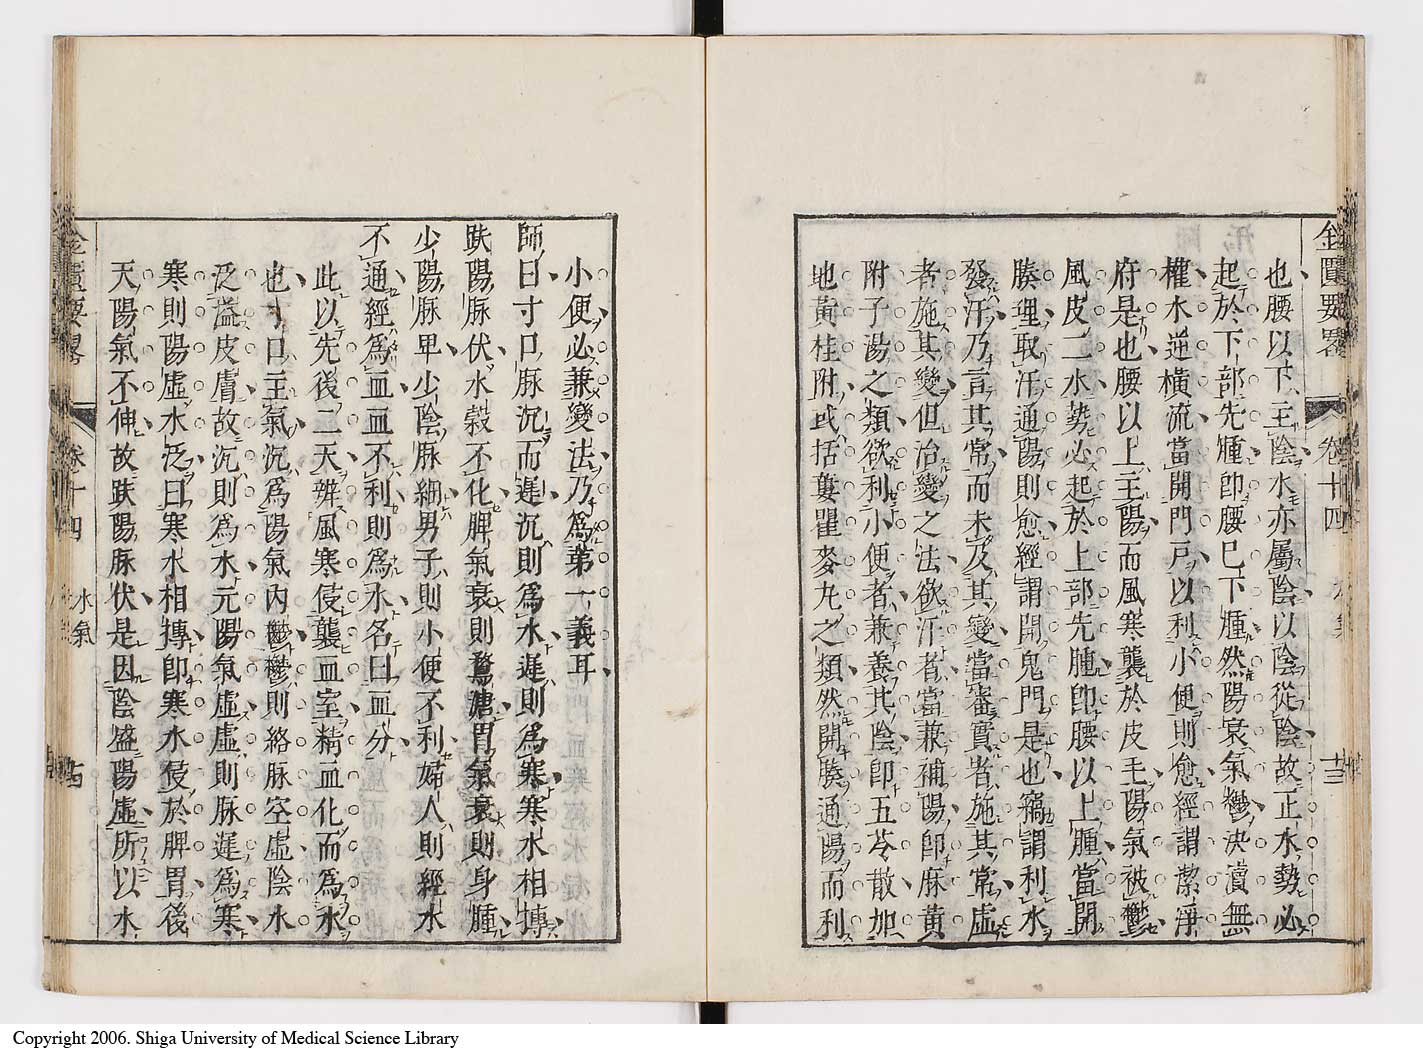 金匱要畧 卷十四 水氣 十三
也腰以下主陰水亦屬陰以陰從陰故正水勢必
起於下部先腫即腰已下腫然陽衰氣鬱決瀆無
權水逆橫流當開門戶以利小便則愈經謂潔淨
府是也腰以上主陽而風寒襲於皮毛陽氣被鬱
風皮二水勢必起於上部先腫即腰以上腫當開
腠理取汗通陽則愈經謂開鬼門是也竊謂利水
發汗乃言其常而未及其變當審實者施其常虛
者施其變但治變之法欲汗者當兼補陽即麻黃
附子湯之類欲利小便者兼養其陰即五苓散加
地黃桂附或括蔞瞿麥丸之類然開腠通陽而利
小便必兼變法乃為第一義耳
師曰寸口脉沉而遲沉則為水遲則為寒寒水相摶
趺陽脉伏水穀不化脾氣衰則鶩溏胃氣衰則身腫
少陽脉卑少陰脉細男子則小便不利婦人則經水
不通經為血血不利則為水名曰血分
此以先後二天辨風寒侵襲血室精血化而為水
也寸口主氣沉為陽氣內鬱鬱則絡脉空虛陰水
泛溢皮膚故沉則為水元陽氣虛虛則脉遲為寒
寒則陽虛水泛曰寒水相摶即寒水侵於脾胃後
天陽氣不伸故趺陽脉伏是因陰盛陽虛所以水
金匱要畧 卷十四 水氣 十四
Copyright 2006. Shiga University of Medical Science Library